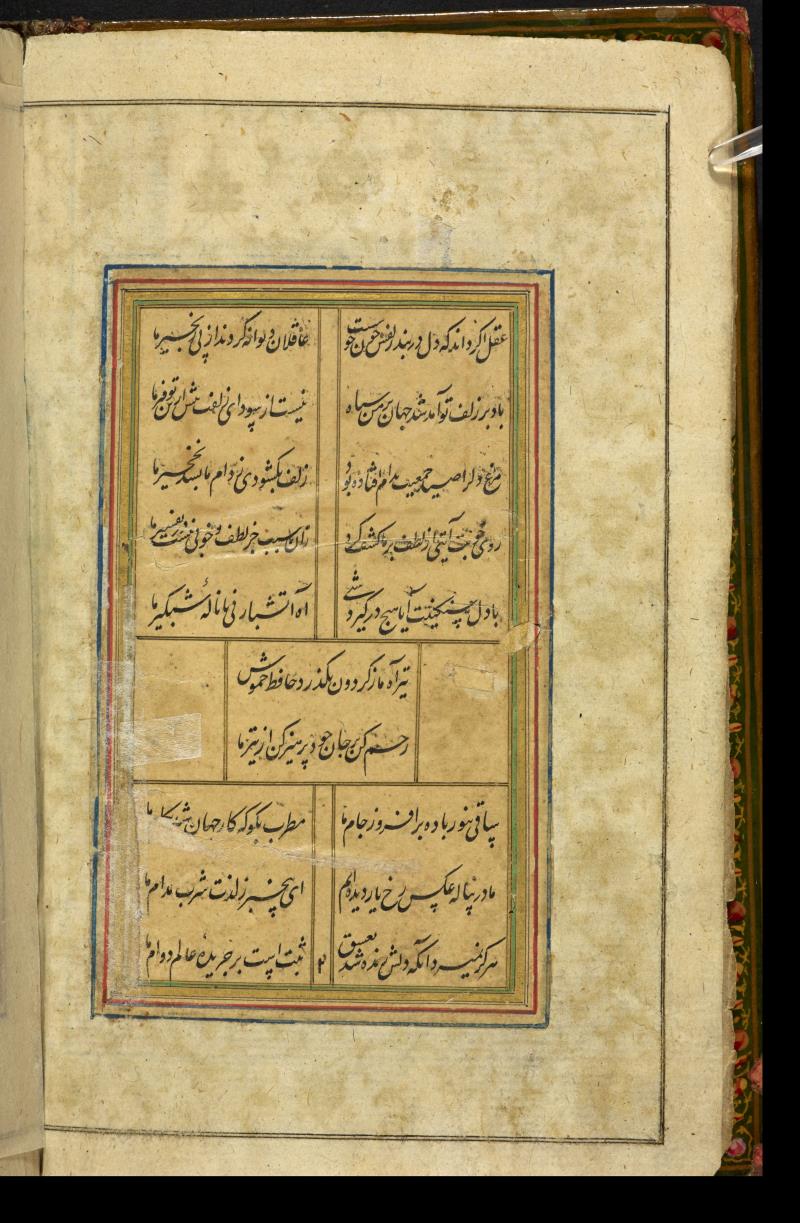 عقل اگر داند که دل در بند زلفش چون خوشست
عاقلان دیوانه گردند از پی زنجیر ما
باد بر زلف تو آمد شد جهان بر من سیاه
نیست از سودای زلفت بیش ازین توفیر ما
مرغ دل را صید جمعیت بدام افتاده بود
زلف بگشودی ز دام ما بشد نخجیر ما
روی خوبت آیتی از لطف بر ما کشف کرد
زان سبب جز لطف و خوبی نیست در تفسیر ما
با دل سنگینت آیا هیچ در گیرد شبی
آه آتشبار نی با نالهٔ شبگیر ما
تیر آه ما ز گردون بگذرد حافظ خموش
رحم کن بر جان خود پرهیز کن از تیر ما
ساقی بنور باده برافروز جام ما
مطرب بگو که کار جهان شد بکام ما
ما در پیاله عکس رخ یار دیده‌ایم
ای بیخبر ز لذت شرب مدام ما
هرگز نمیرد آنکه دلش زنده شد بعشق
ثبت است بر جریدهٔ عالم دوام ما